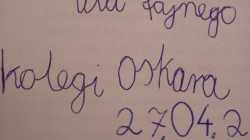 dla fajnego
kolegi Oskara
27,04,2